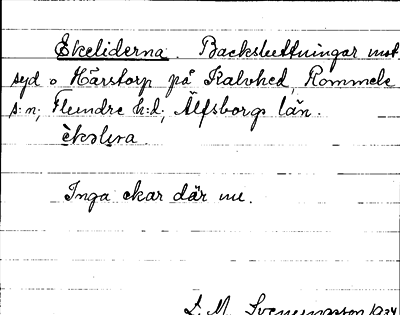 Ekeliderna. Backsluttningar mot
syd o Härstorp på Kalvhed, Rommele
s:n; Flundre h:d; Älfsborgs län.
Inga ekar där nu.
L. M. Svenungsson 1934